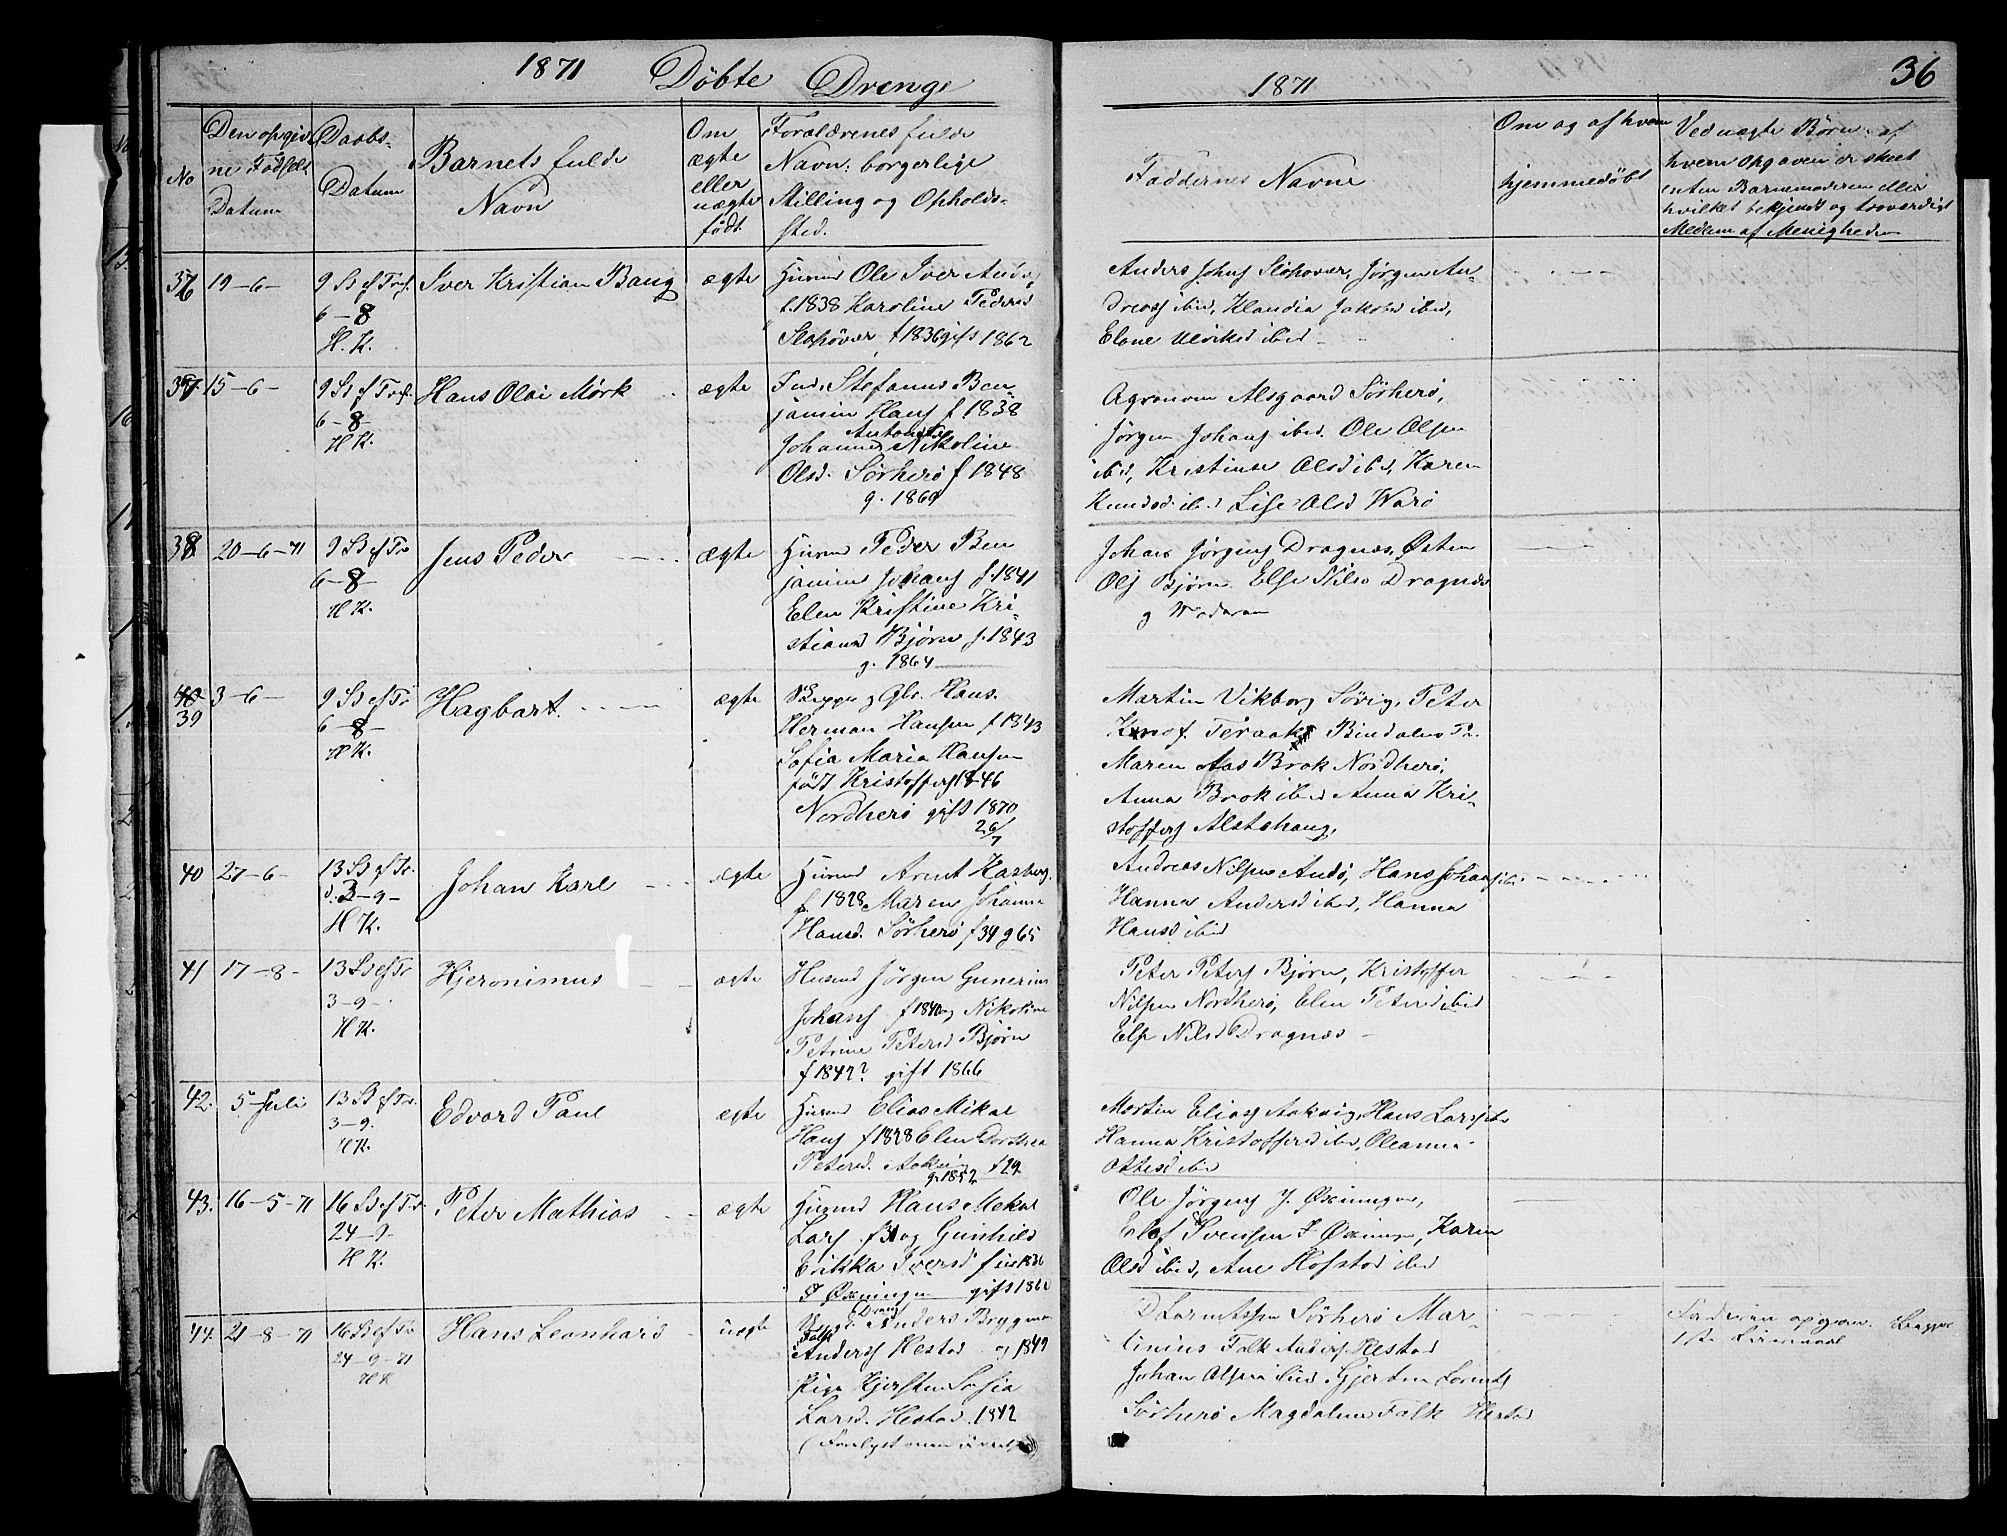 1871 Döbte Drenge
1871
36
No
Den opgiv-
ne Födsels
Datum
Daabs-
Datum
Barnets fulde
Navn
Om
ægte
eller
uægte
födt.
Forældrenes fulde
Navn: borgerlige
Stilling og Opholds-
sted.
Faddernes Navne
Om og af hvem
hjemmedöbt
Ved uægte Börn. af
hvem Opgaven er skeet
enten Barnemoderen eller
hvilket bekjendt og troværdigt
Medlem af Menigheden
36 19-6- 9 S ef Tref. Iver Kristian Bang ægte Huusm Ole Iver Anders
6-8 f. 1838 Karoline Pedersd
H. K. f 1836 gift 1862
Anders Johns Jörgen An-
dreass ibid, Klaudia Jakobsd ibid,
ibid
37. 15-6- 9 S ef Tref. Hans Olai Mörk ægte Stefanus Ben
6-8 jamin Hans f 1838
H K. Antonette
Johanna Nikoline
Olsd. Sörherö f 1848
g. 1869
Agronom Alsgaard Sörherö,
Jörgen Johans ibid. Ole Olsen
ibid, Kristine Olsd ibid, Karen
Knudsd ibid Lise Olsd Warö
38 20-6-71 9 S ef Tr Jens Peder ægte Huusm Peder Ben
6-8- jamin Johans f. 1841
H K. Elen Kristine Kri-
stiansd Björn f. 1843
g. 1864
Johan Jörgens Dragnæs, Östen
Ols Björn Else Nilsd Dragnæs
g Moderen
40 3-6- 9 S ef Tr Hagbart. ægte Hans
39 6-8 Herman Hansen f 1843
H K. Sofia Maria Hansen
födt Kristoffers 1846
Nordherö gift 1870
26/7
Martin Vikborg Sövig, Peter
Knof. Teraak Bindalen
Maren Aas Brok Nordherö,
Anna Brok ibid Anna Kri-
stoffers Alstahaug,
40 27-6- 13 S ef Tr. Johan Karl ægte Huusm Arnt
d. 3-9- f. 1828 Maren Johanna
H K. Hansd. Sörherö f 34 g 65
Andreas Nilsen Andö, Hans Johans ibid.
Hanna Andersd ibid, Hanna
Hansd ibid
41 17-8- 13 S ef Tr Hjeronimus ægte Huusmd Jörgen Gunerius
3-9- Johans f 1840 og Nikoline
H K. Petrine Petersd Björn
f 1842? gift 1866
Peter Peters Björn, Kristoffer
Nilsen Nordherö, Elen Petersd ibid
Else Nilsd Dragnæs
42. 5 Juli 13 S ef Tr. Edvard Paul ægte Huusm Elias Mikal
3-9. Hans f 1828 Elen Dorthea
H K. Petersd. Aakvig f 29
g. 1852
Martin Eliass Aakvig, Hans Lars ibid
Hanna Kristoffersd ibid, Oleanna
Ottesd ibid
43. 16-5-71 16 S ef Tr. Peter Mathias ægte Huusmd Hans Mekal
24-9 Lars f 31 og Gunhild
H K. Erikka Iversd f 1836
I Öxningen gift 1860
Ole Jörgens Y. Öxningen,
Elof Svensen I Öxningen, Karen
Olsd ibid, Ane Hofstad ibid
44. 21-8-71 16 S ef Tr Hans Leonhard uægte Ungk. Anders Bryggman
24-9-71 Falk
H K Anders Hestad og 1849
Pige Kjersten Sofia
Larsd. Hestad. 1842
Sörherö Mar-
tinius Falk Anders Hestad
Johan Olsen ibid Gjertru Lornts
Sörherö Magdalena Falk Hestad
Faderen opgiven
1ste Leiermaal